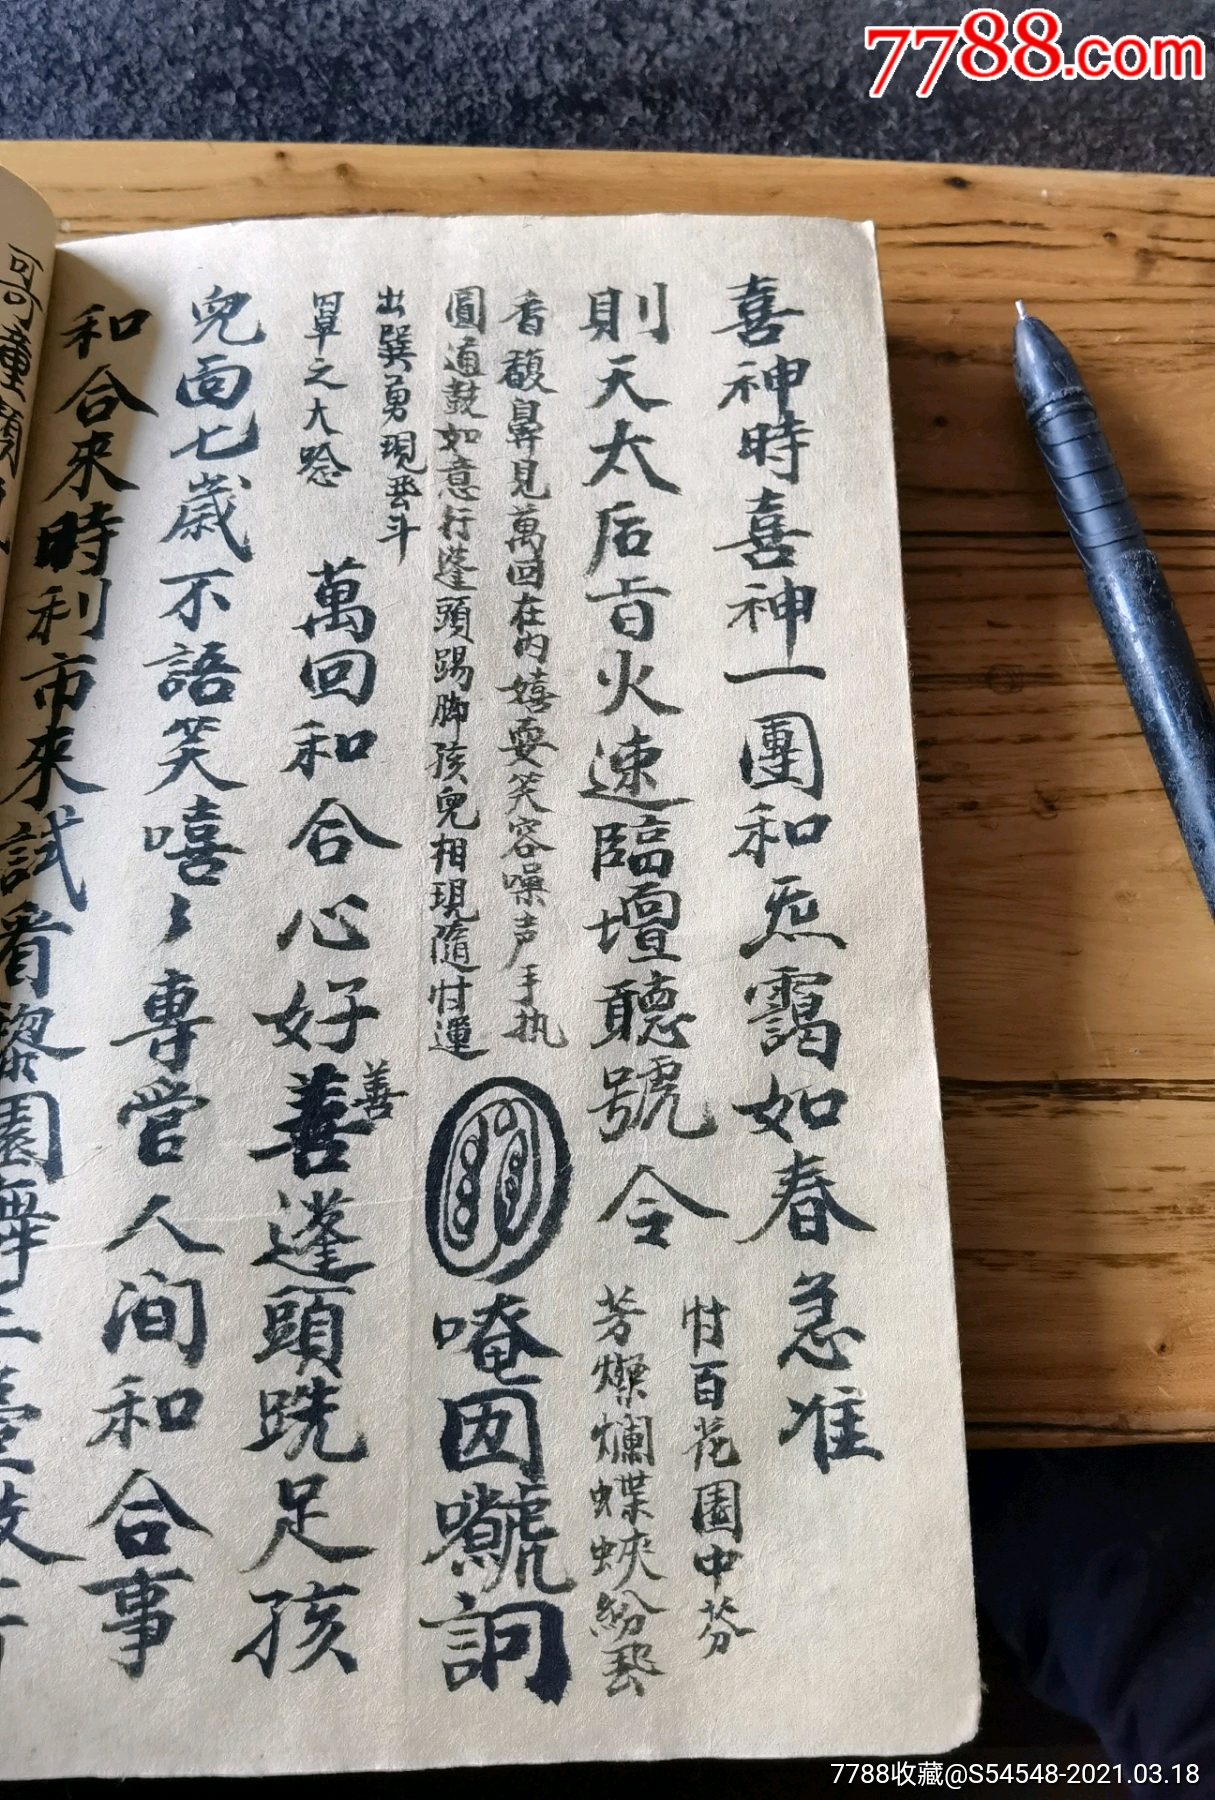 7788.com
喜神時喜神一團和炁靄如春急准
則天太后旨火速臨壇聽號令
忖百花園中芬
芳燦爛蝶蛺紛飛
香馥鼻見萬回在內嬉耍笑容噪声手执
圓通鼓如意行蓬頭踢脚孩兒相現隨忖運
唵因
出巽勇現
斗
罩之大
萬回和合心好善蓬頭跣足孩
善
兒面七歲不語笑嘻〻專管人间和合事
和合來時利市來試看黎園舞
7788收藏@S54548-2021.03.18